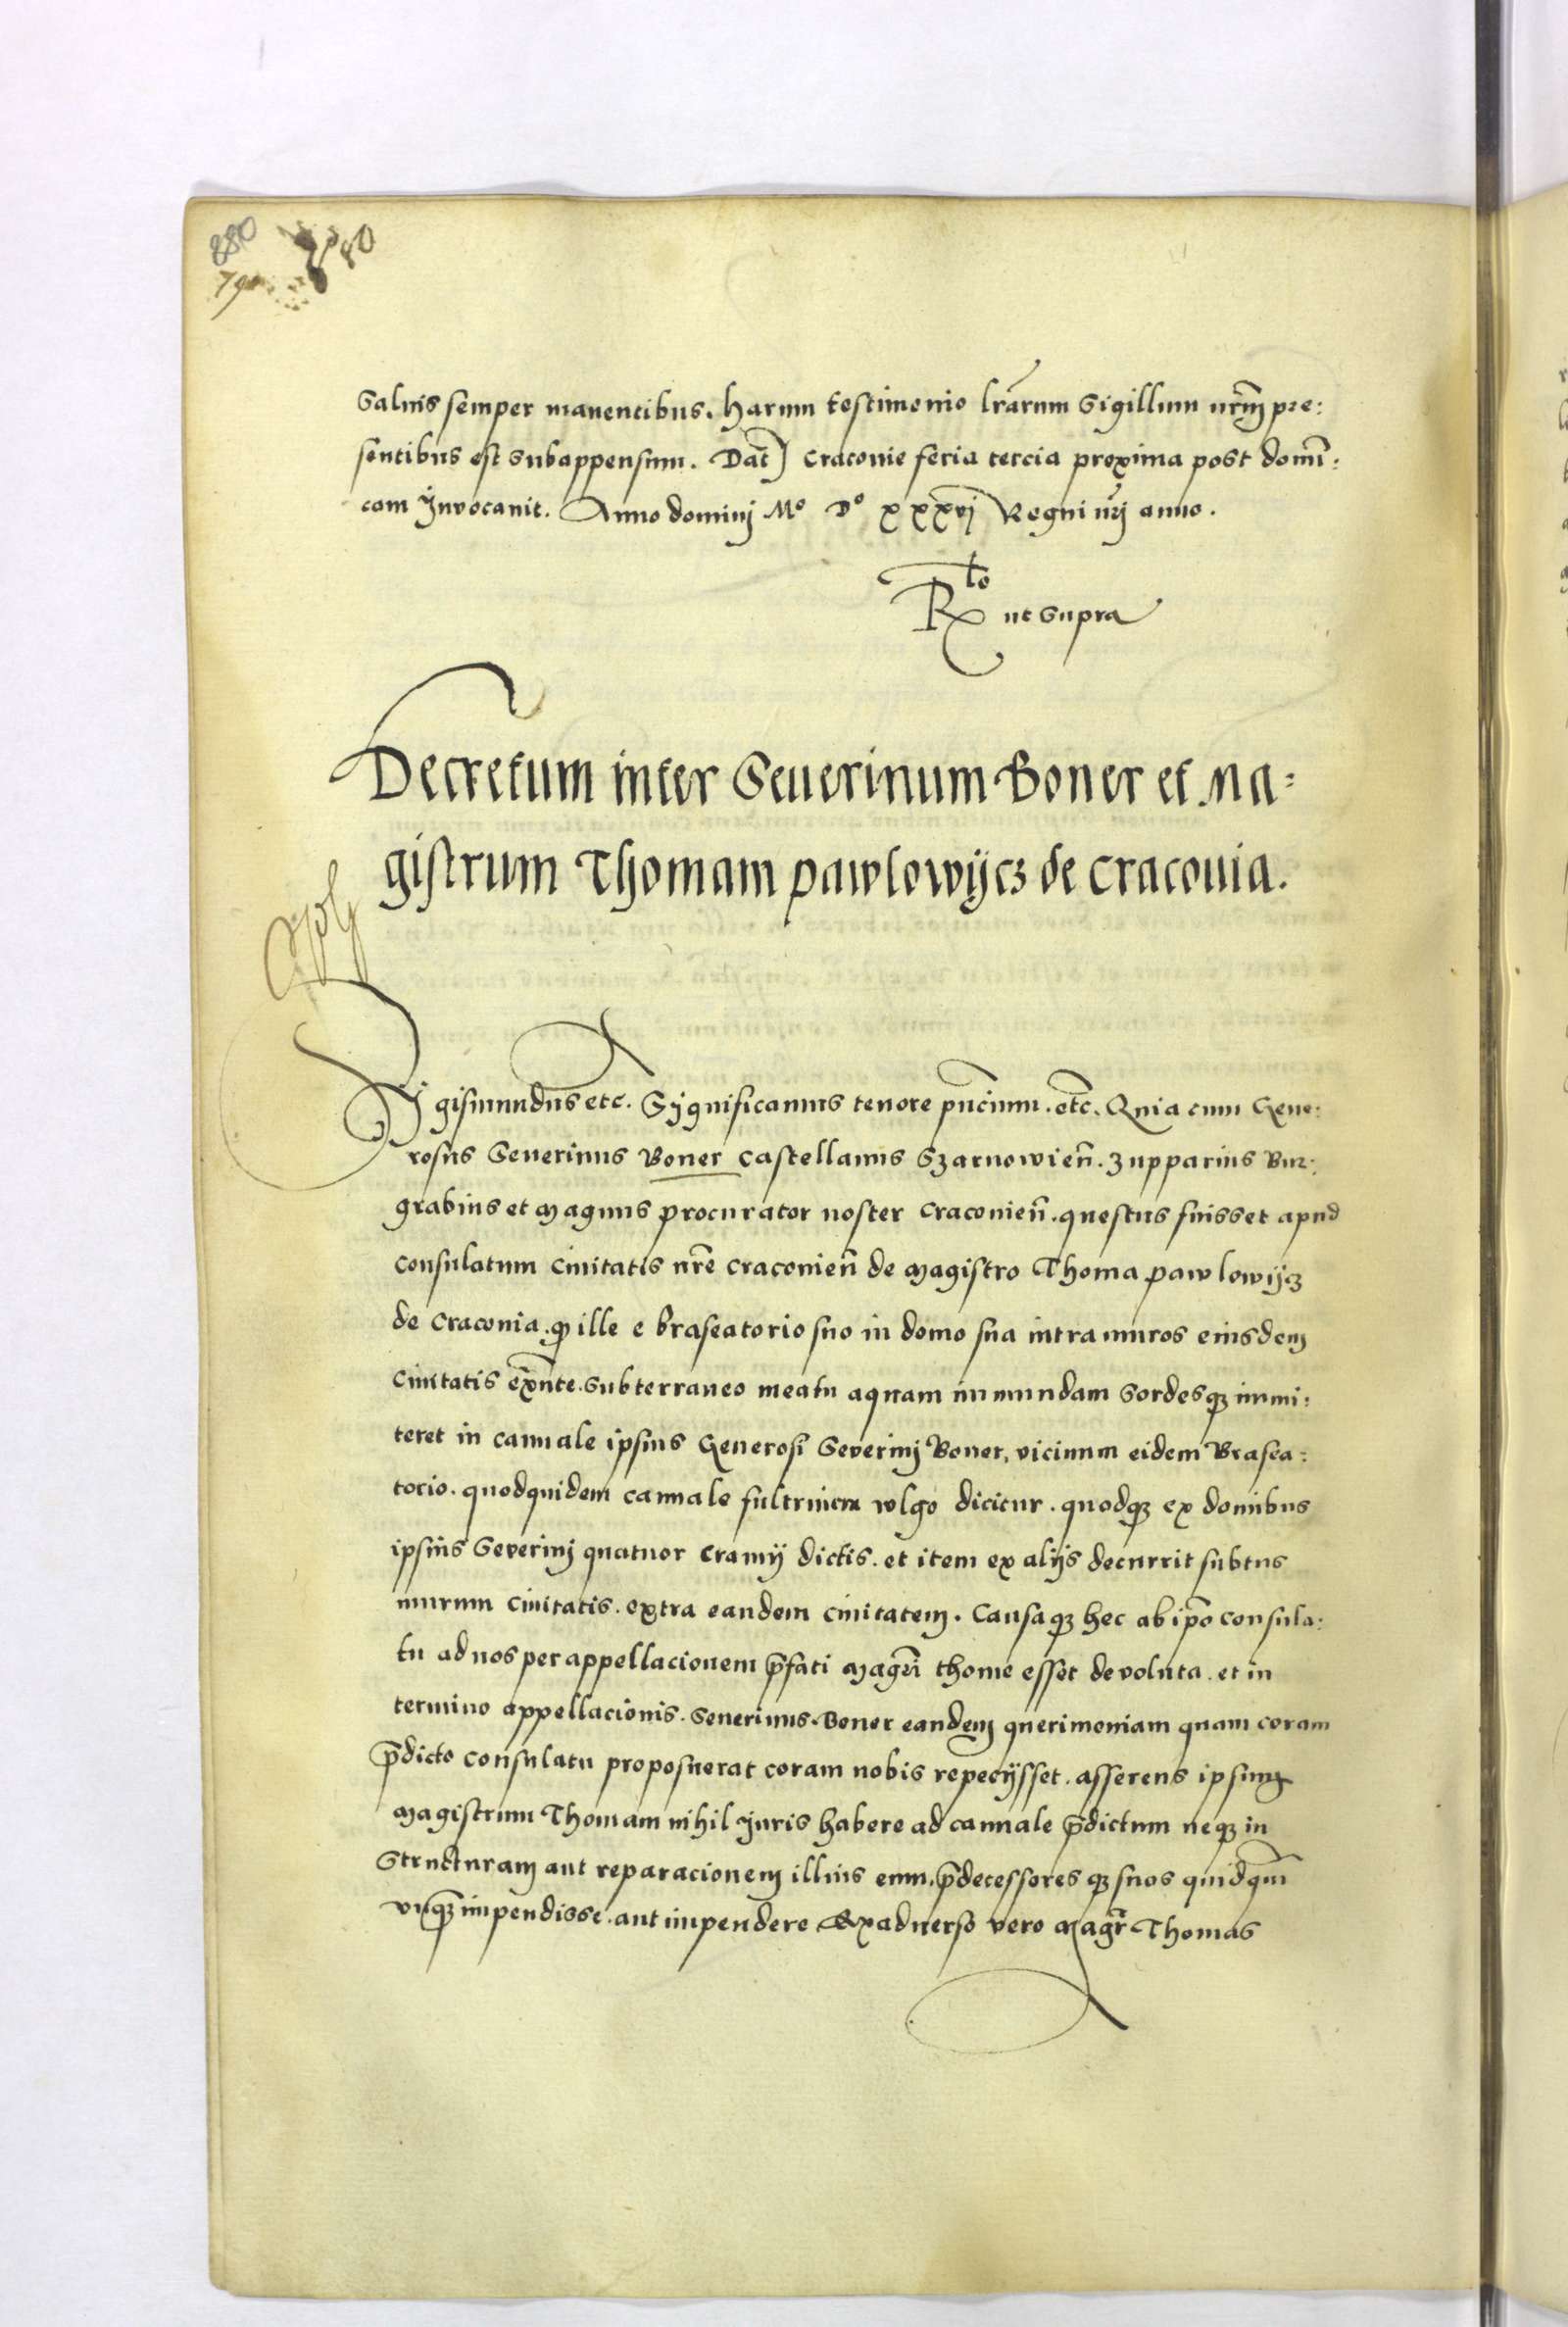 880
80
79
Salvis semper manentibus. Harum testimonio lrarum Sigillum nrm pre:
sentibus est subappensum. Dat Cracovie feria tercia proxima post domi:
cam Invocavit. Anno dominj Mº Dº xxxvj Regni nrj anno.
Rto ut supra
Decretum inter Severinum Boner et Ma:
gistrum Thomam Pawlowijcz de Cracovia.
Sigismundus etc. Significamus tenore pncium. etc. Quia cum Gene:
rosus Severinus Boner Castellanus Szarnowien. Zupparius Bur:
grabius et Magnus procurator noster Cracovien. questus fuisset apud
Consulatum Civitatis nre Cracovien de Magistro Thoma Pawlowijcz
de Cracovia. qp ille e braseatorio suo in domo sua intra muros eiusdem
Civitatis exnte. subterraneo meatu aquam inmundam sordesqz inmi:
teret in cannale ipsius Generosi Severinj Boner, vicinum eidem Brasea:
torio. quodquidem cannale fultrincu wlgo dicitur. quodqz ex domibus
ipsius Severinj quatuor cramij dictis. et item ex alijs decurrit subtus
murum Civitatis. extra eandem civitatem. Causaqz hec ab ipo consula:
tu ad nos per appellacionem pfati Magri Thome esset devoluta. et in
termino appellacionis. Severinus Boner eandem querimoniam quam coram
pdicto Consulatu proposuerat coram nobis repecijsset. asserens ipsum
Magistrum Thomam nihil Juris habere ad cannale pdictum neqz in
Structuram aut reparacionem illius eum. pdecessores qz suos quidqm
unqz impendisse. aut impendere Ex adverso vero Magr Thomas